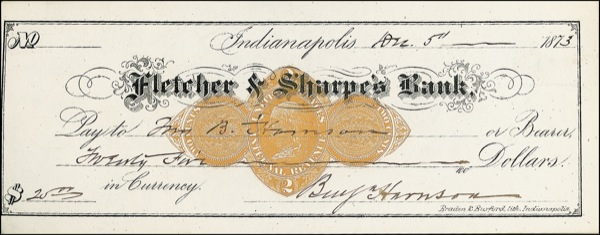 No Indianapolis Dec. 5th 1873
Fletcher & Sharpe's Bank.
Pay to Mrs B. Harrison or Bearer,
Twenty Five 00 Dollars.
$ 25.00 in Currency. Benj Harrison
Braden & Burford, lith. Indianapolis.
INTERNAL REVENUE
2